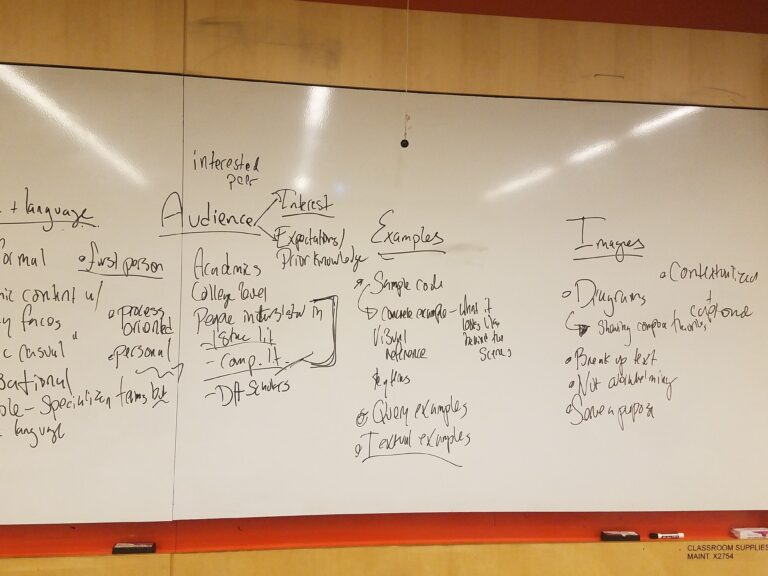 + language
ormal
first person
content w/
process
oriented
casual
personal
Specialize terms but
language
interested
peer
Audience
Interest
Expectations/
Prior Knowledge
Academics
College level
People interested in
- comp. lit.
- DH Scholars
Examples
Sample code
concrete example - what it
looks like
behind the
scenes
Visual
reference
Query examples
Textual examples
Images
Contextualized
+
captioned
Diagrams
Sharing
Break up text
Not overwhelming
Serve a purpose
CLASSROOM SUPPLIES
MAINT. X2754